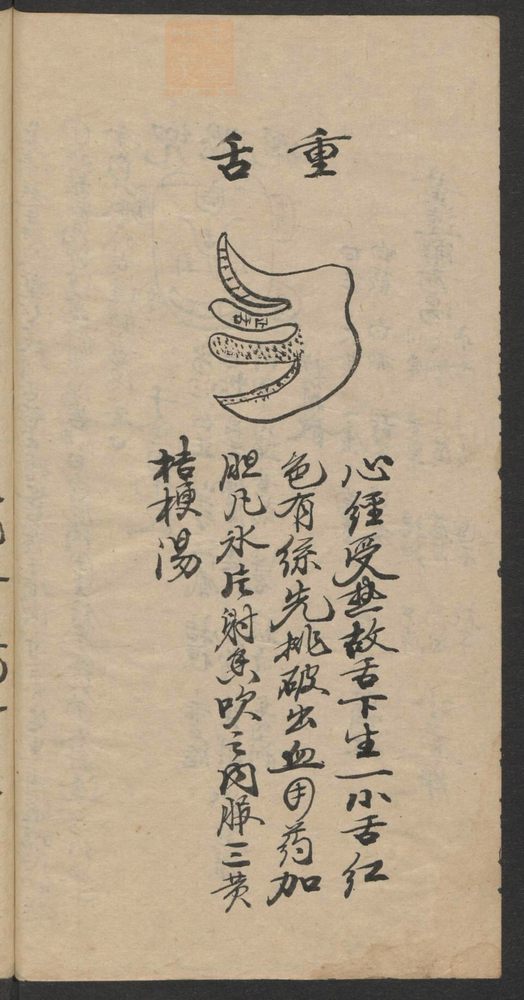 重舌
正舌
心經受热故舌下生一小舌红
色有络先挑破出血用药加
胆凡氷片射香吹之内服三黄
桔梗湯